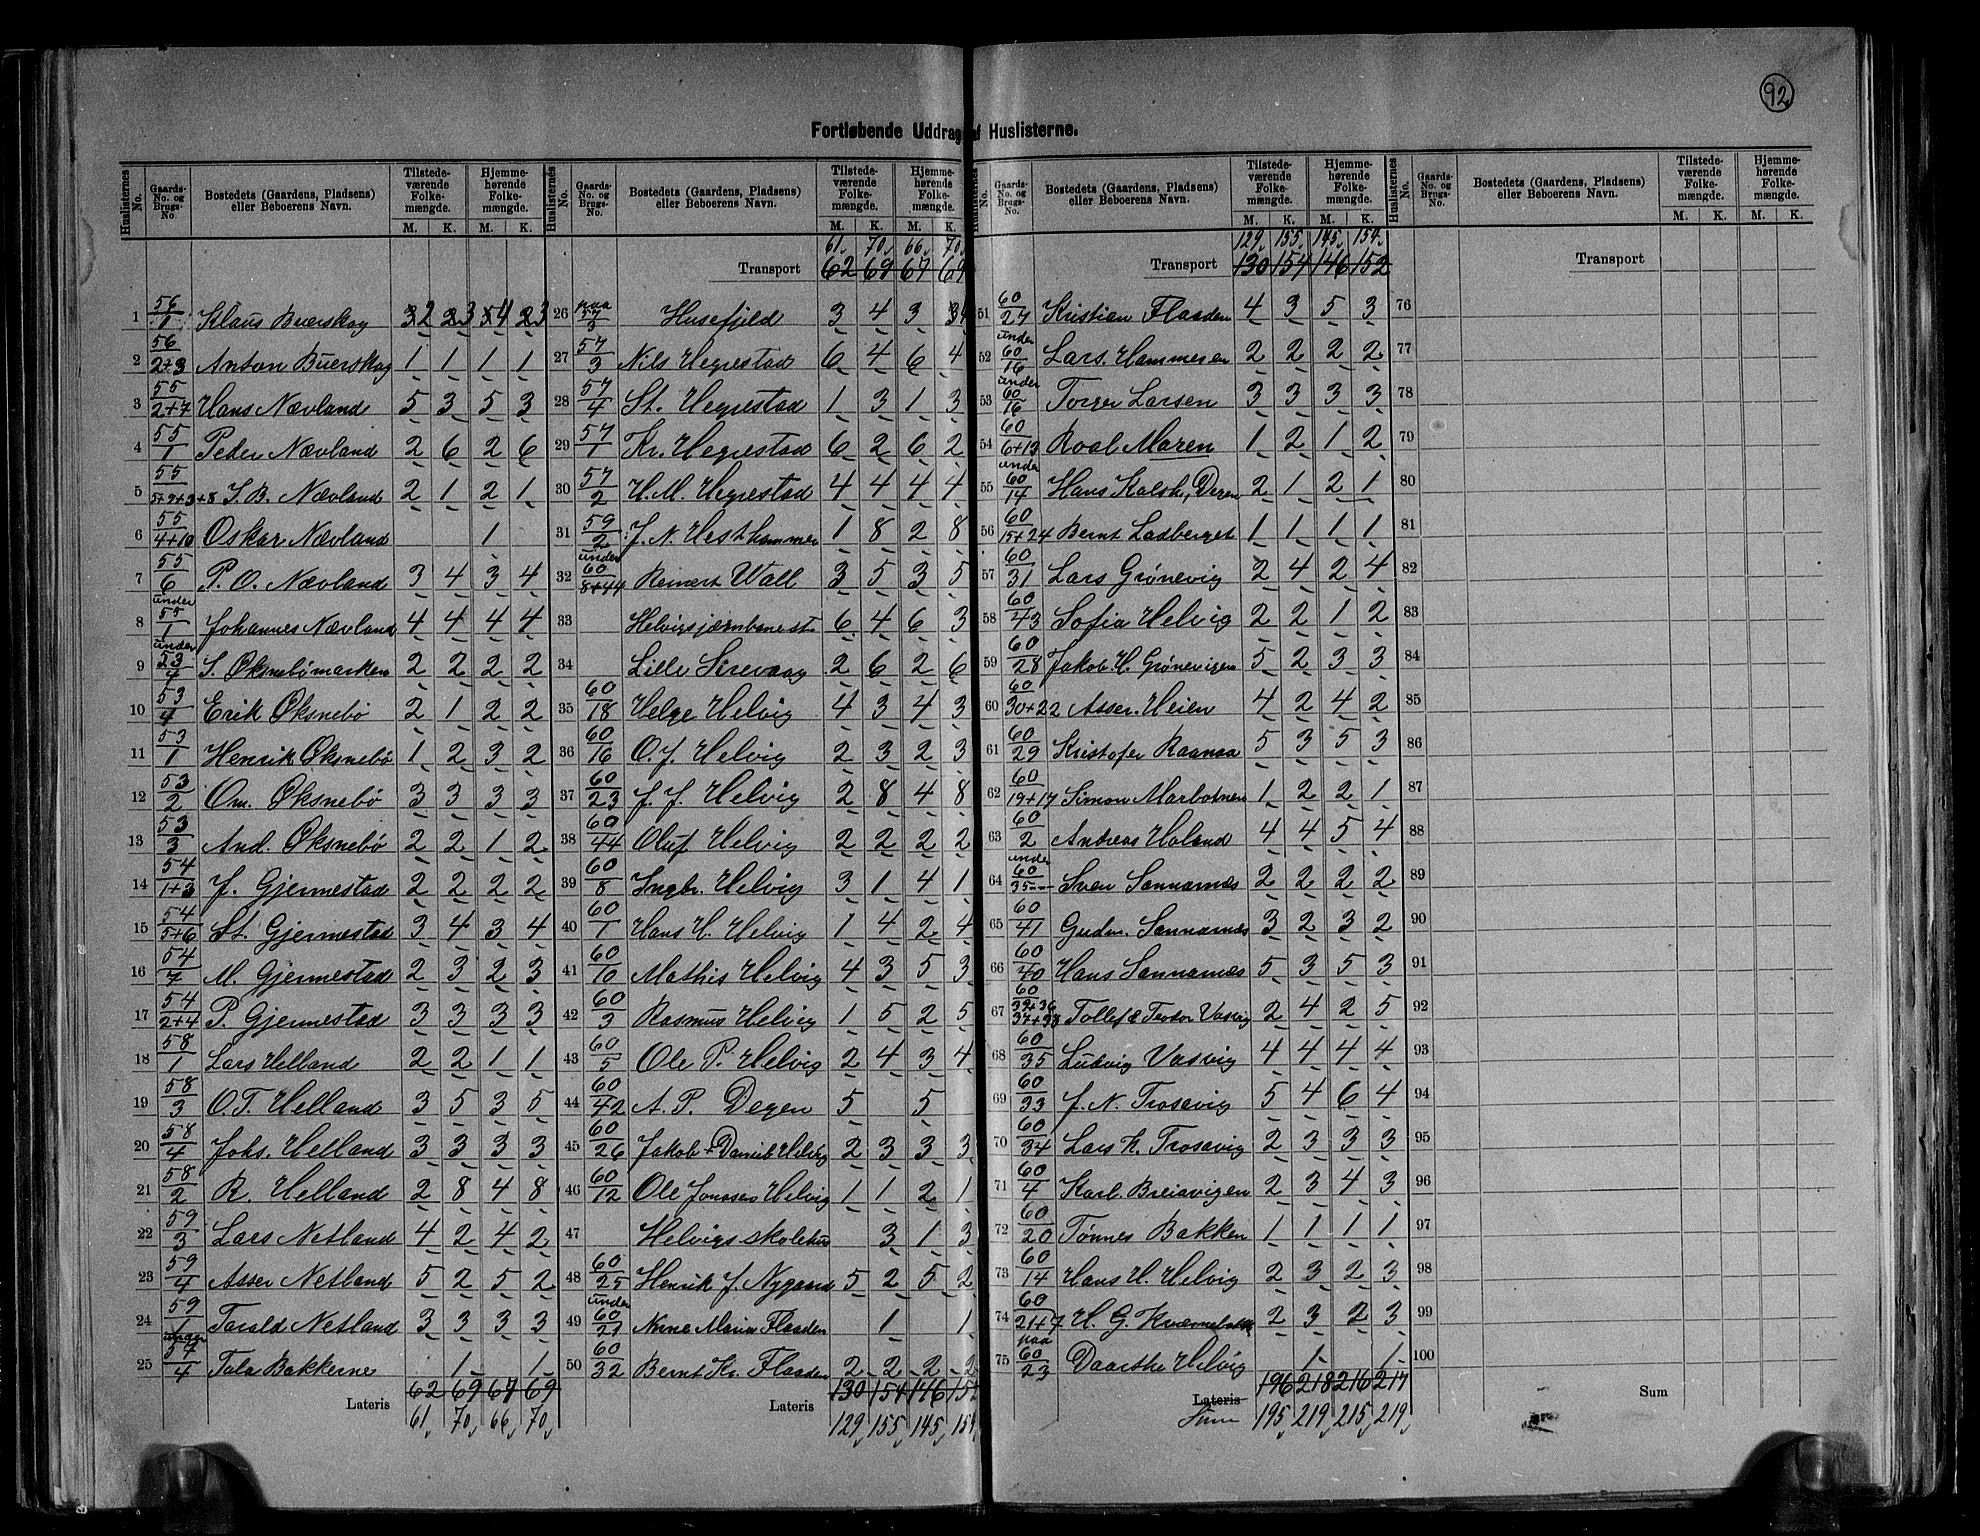 92
Fortløbende Uddrag af Huslisterne.
Huslisternes No. Gaards-No. og Brugs-No. Bostedets (Gaardens, Pladsens) eller Beboerens Navn. Tilstedeværende Folkemængde. M. K. Hjemmehørende Folkemængde. M. K.
1 56/1 Klaus Buerskog 2 3 4 3
2 56/2+3 Anton Buerskog 1 1 1 1
3 55/2+7 Hans Nævland 5 3 5 3
4 55/1 Peder Nævland 2 6 2 6
5 55/5+9+3+8 S. B. Nævland 2 1 2 1
6 55/4+10 Oskar Nævland 1
7 55/6 P. O. Nævland 3 4 3 4
8 under 55/1 Johannes Nævland 4 4 4 4
9 under 53/4 S. Øksnebømarken 2 2 2 2
10 53/4 Erik Øksnebø 2 1 2 2
11 53/1 Henrik Øksnebø 1 2 3 2
12 53/2 Om. Øksnebø 3 3 3 3
13 53/3 And. Øksnebø 2 2 1 2
14 54/1+3 J. Gjermestad 2 2 2 2
15 54/5+6 St. Gjermestad 3 4 3 4
16 54/7 M. Gjermestad 2 3 2 3
17 54/2+4 P. Gjermestad 3 3 3 3
18 58/1 Lars Helland 2 2 1 1
19 58/3 O. T. Helland 3 5 3 5
20 58/4 Johs. Helland 3 3 3 3
21 58/2 R. Helland 2 8 4 8
22 59/3 Lars Netland 4 2 4 2
23 59/4 Asser Netland 5 2 5 2
24 59/1 Torald Netland 3 3 3 3
25 under 54/4 Tala Bakkerne 1 1
Lateris 62 69 67 69
61 70 66 70
Huslisternes No. Gaards-No. og Brugs-No. Bostedets (Gaardens, Pladsens) eller Beboerens Navn. Tilstedeværende Folkemængde. M. K. Hjemmehørende Folkemængde. M. K.
61 70 66 70
Transport 62 69 67 69
26 paa 57/3 Husefjeld 3 4 3 4
27 57/3 Nils Hegrestad 6 4 6 4
28 57/4 St. Hegrestad 1 3 1 3
29 57/1 Kr. Hegrestad 6 2 6 2
30 57/2 H. M. Hegrestad 4 4 4 4
31 59/2 J. N. Hesthammer 1 8 2 8
32 under 60/8+44 Reinert Wall 3 5 3 5
33 Helvigs jernbanest 6 4 6 3
34 Lille Sirevaag 2 6 2 6
35 60/18 Helge Helvig 4 3 4 3
36 60/16 O. J. Helvig 2 3 2 3
37 60/23 J. J. Helvig 2 8 4 8
38 60/44 Oluf Helvig 2 2 2 2
39 60/8 Ingbr. Helvig 3 1 4 1
40 60/1 Hans H. Helvig 1 4 2 4
41 60/10 Mathis Helvig 4 3 5 3
42 60/3 Rasmus Helvig 1 5 2 5
43 60/5 Ole P. Helvig 2 4 3 4
44 60/42 A. P. Degen 5 5
45 60/26 Jakob + Daniel Helvig 2 3 3 3
46 60/12 Ole Jonassen Helvig 1 1 2 1
47 Helvigs skolehus 3 1 3
48 60/25 Henrik J. Nygaard 5 2 5 2
49 under 60/21 Anne Maria Flaaden 1 1
50 60/32 Bernt Kr. Flaaden 2 2 2 2
Lateris 130 154 146 152
129 155 145 154
Huslisternes No. Gaards-No. og Brugs-No. Bostedets (Gaardens, Pladsens) eller Beboerens Navn. Tilstedeværende Folkemængde. M. K. Hjemmehørende Folkemængde. M. K.
129 155 145 154
Transport 130 154 146 152
51 60/27 Kristian Flaaden 4 3 5 3
52 under 60/16 Lars. Hammeren 2 2 2 2
53 under 60/16 Torger Larsen 3 3 3 3
54 60/6+13 Roal Maren 1 2 1 2
55 under 60/14 Hans Kalsh, Degen 2 1 2 1
56 60/15+24 Bernt Ladberget 1 1 1 1
57 60/31 Lars Grønevig 2 4 2 4
58 60/43 Sofia Helvig 2 2 1 2
59 60/28 Jakob H. Grønevigen 5 2 3 3
60 60/30+22 Asser Heien 4 2 4 2
61 60/29 Kristofer Raanaa 5 3 5 3
62 60/19+17 Simon Marbotnen 1 2 2 1
63 60/2 Andreas Haland 4 4 5 4
64 under 60/35 Sven Sannarnes 2 2 2 2
65 60/41 Gudm. Sannarnes 3 2 3 2
66 60/40 Hans Sannarnes 5 3 5 3
67 60/39+36 37+38 Tollef & Teodor Vasvig 2 4 2 5
68 60/35 Ludvig Vasvig 4 4 4 4
69 60/33 J. N. Trosavig 5 4 6 4
70 60/34 Lars K. Trosavig 2 3 3 3
71 60/4 Karl. Breiavigen 2 3 4 3
72 60/20 Tønnes Bakken 1 1 1 1
73 60/14 Hans H. Helvig 2 3 2 3
74 60/21+7 H. G. 2 3 2 3
75 paa 60/23 Daarthe Helvig 1 1
Lateris 196 218 216 217
Sum 195 219 215 219
Huslisternes No. Gaards-No. og Brugs-No. Bostedets (Gaardens, Pladsens) eller Beboerens Navn. Tilstedeværende Folkemængde. M. K. Hjemmehørende Folkemængde. M. K.
Transport
76
77
78
79
80
81
82
83
84
85
86
87
88
89
90
91
92
93
94
95
96
97
98
99
100
Sum